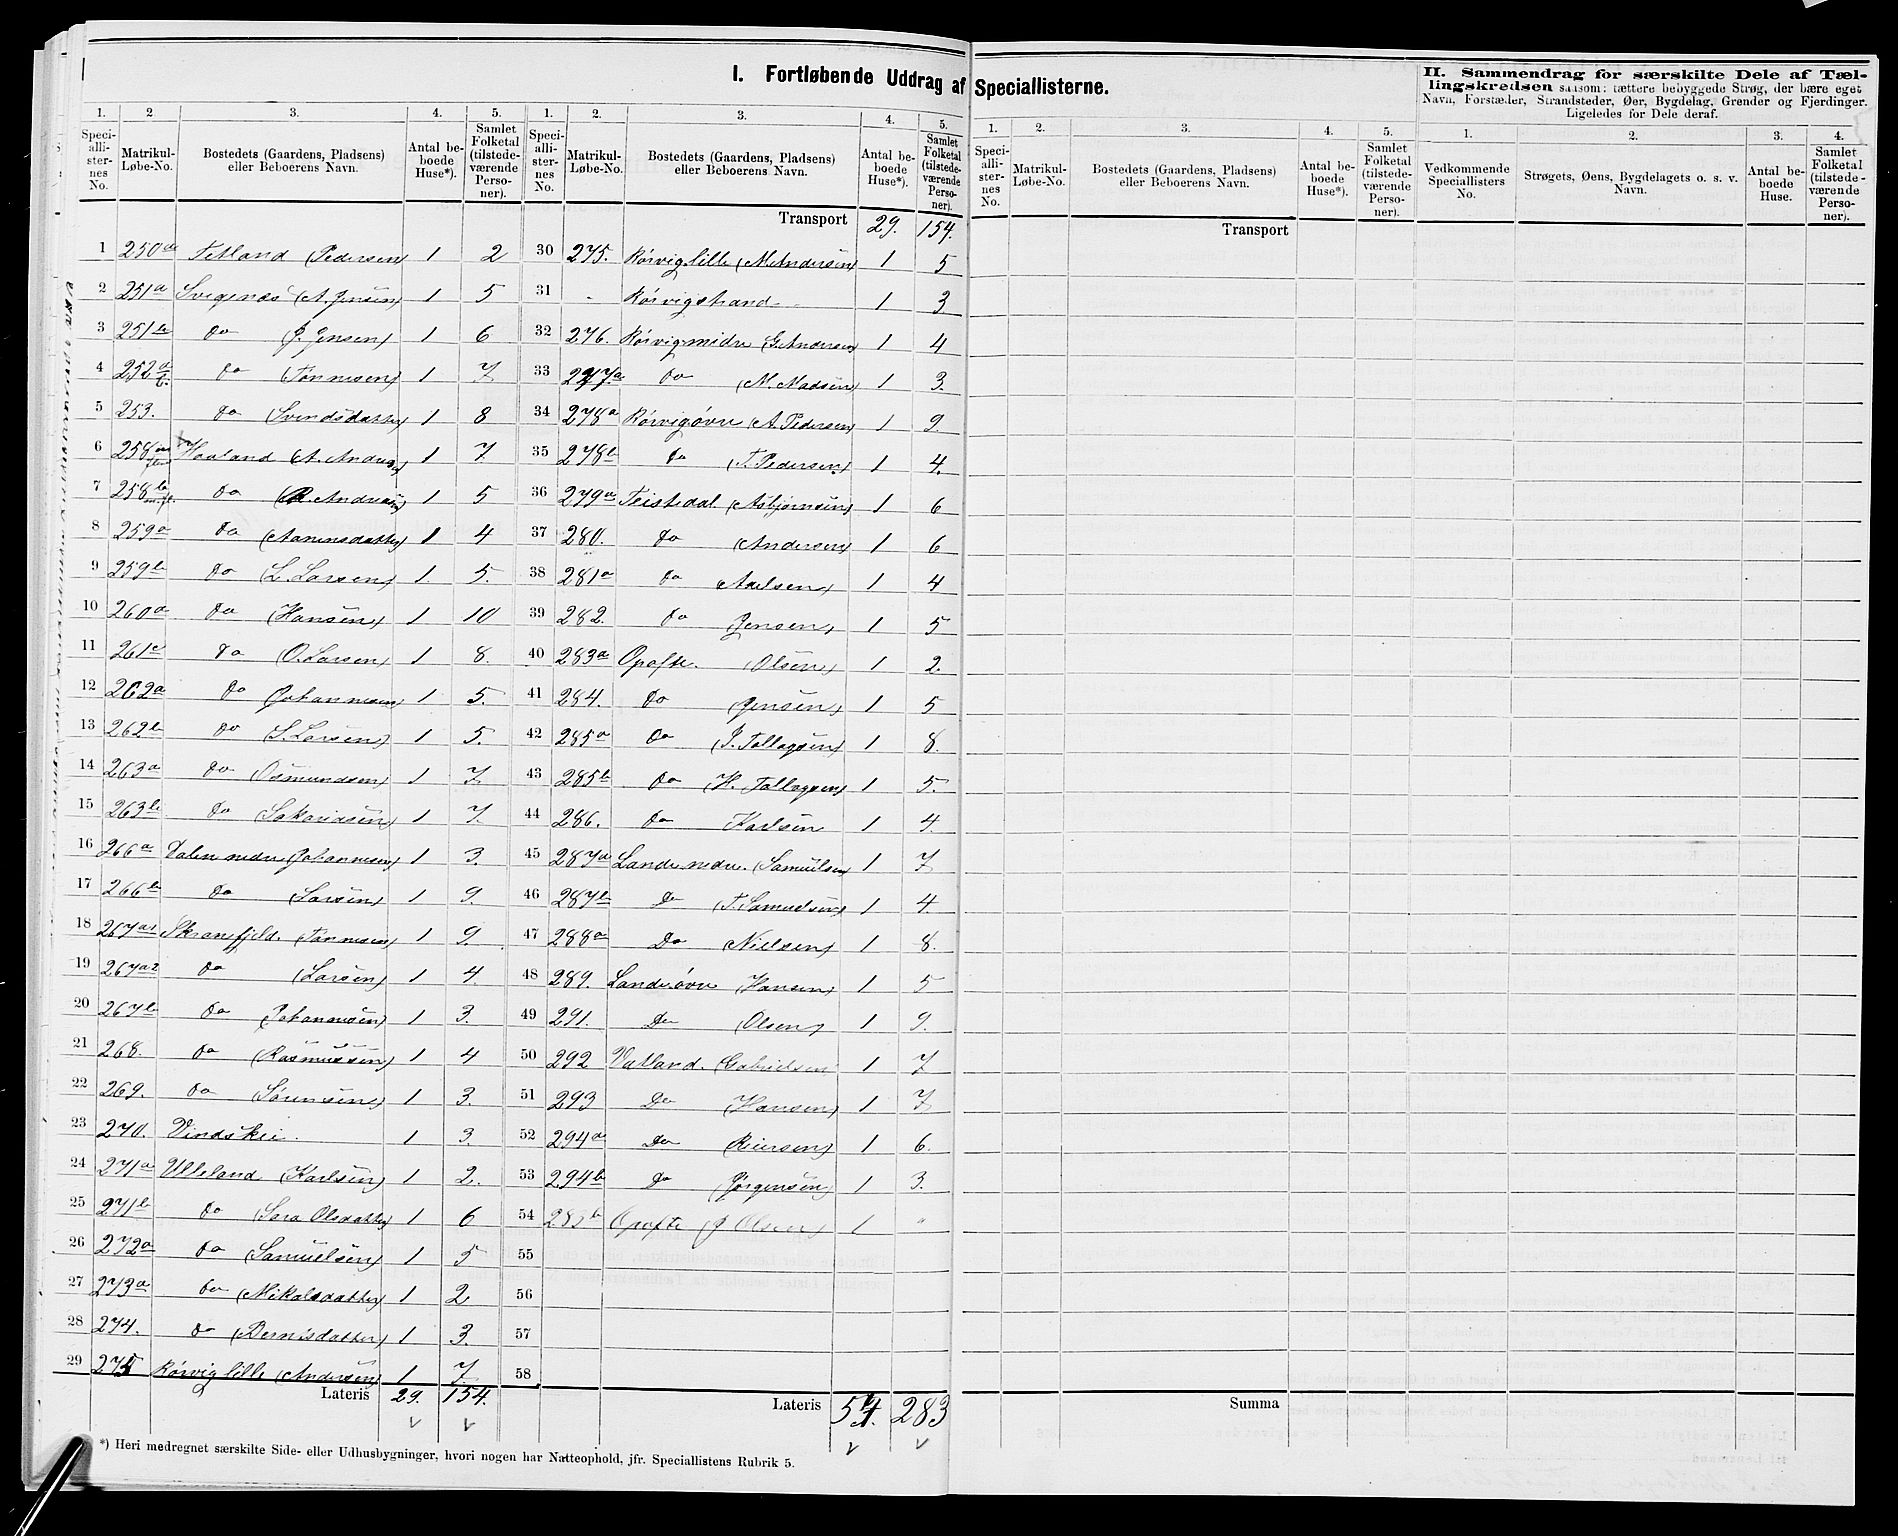 I. Fortløbende Uddrag af Speciallisterne.
II. Sammendrag for særskilte Dele af Tæl-
lingskredsen saasom: tættere bebyggede Strøg, der bære eget
Navn, Forstæder, Strandsteder, Øer, Bygdelag, Grender og Fjerdinger.
Ligeledes for Dele deraf.
1. 2. 3. 4. 5. 1. 2. 3. 4. 5. 1. 2. 3. 4. 5. 1. 2. 3. 4.
Speci-alli-ster-nes No. Matrikul-Løbe-No. Bostedets (Gaardens, Pladsens) eller Beboerens Navn. Antal be-boede Huse*). Samlet Folketal (tilstede-værende Perso-ner).
Speci-alli-ster-nes No. Matrikul-Løbe-No. Bostedets (Gaardens, Pladsens) eller Beboerens Navn. Antal be-boede Huse*). Samlet Folketal (tilstede-værende Perso-ner).
Speci-alli-ster-nes No. Matrikul-Løbe-No. Bostedets (Gaardens, Pladsens) eller Beboerens Navn. Antal be-boede Huse*). Samlet Folketal (tilstede-værende Perso-ner).
Vedkommende Speciallisters No. Strøgets, Øens, Bygdelagets o. s. v. Navn. Antal be-boede Huse. Samlet Folketal (tilstede-værende Perso-ner).
1 250a Tetland (Pedersen) 1 2
2 251a Svegenæs (A. Jensen) 1 5
3 251b do (J. Jensen) 1 6
4 252a b. do (Tønnesen) 1 7
5 253. do (Svendsdatter) 1 8
6 258a Haaland (A. Andreasen) 1 7.
7 258b m.fl. do (R. Andreasen) 1 5
8 259a do (Aanensdatter) 1 4
9 259b do (L. Larsen) 1 5.
10 260a do (Hansen) 1 10
11 261c do (O. Larsen) 1 8.
12 262a do (Johannesen) 1 5.
13 262b do (S. Larsen) 1 5.
14 263a do (Osmundsen) 1 7
15 263b do (Sakariasen) 1 7.
16 266a Dalen nedre (Johannesen) 1 3.
17 266b do (Larsen) 1 9.
18 267a1 Skranefjeld. (Tønnesen) 1 9.
19 267a2 do (Larsen) 1 4.
20 267b do (Johannesen) 1 3.
21 268. do (Rasmussen) 1 4
22 269. do (Sørensen) 1 3.
23 270. Vindskei. 1 3.
24 271a Ulleland (Karlsen) 1 2.
25 271b do (Sara Olsdatter) 1 6
26 272a do (Samuelsen) 1 5
27 273a do (Mikalsdatter) 1 2
28 274. do (Bernisdatter) 1 3.
29 275 Rørvig lille (Andersen) 1 7.
Lateris 29. 154.
Transport 29. 154.
30 275. Rørvig lille (M. Andersen) 1 5
31 - Rørvigstrand - 1 3
32 276. Rørvig midre (G. Andersen) 1 4
33 277a do (M. Madsen) 1 3.
34 278a Rørvig øvre (A. Pedersen) 1 9.
35 278b do (T. Pedersen) 1 4.
36 279a Teistedal (Asbjørnsen) 1 6
37 280. do (Andersen) 1 6
38 281a do (Axelsen) 1 4
39 282. do (Jensen) 1 5
40 283a Opofte. (Olsen) 1 2.
41 284. do (Jensen) 1 5
42 285a do (J. Tollagsen) 1 8.
43 285b do (H. Tollagsen) 1 5.
44 286. do Karlsen 1 4.
45 287a Lande nedre. (Samuelsen) 1 7
46 287b Do (T. Samuelsen) 1 4.
47 288a Do (Nielsen) 1 8.
48 289. Lande øvre (Hansen) 1 5
49 291. Do (Olsen) 1 9.
50 292 Vatland. (Gabrielsen 1 7
51 293 Do (Hansen) 1 7
52 294a Do (Reiersen) 1 6.
53 294b Do (Jørgensen) 1 3.
54 283b Opofte (J Olsen) 1 "
55
56
57
58
Lateris 54. 283
Transport
Summa
*) Heri medregnet særskilte Side- eller Udhusbygninger, hvori nogen har Natteophold, jfr. Speciallistens Rubrik 5.